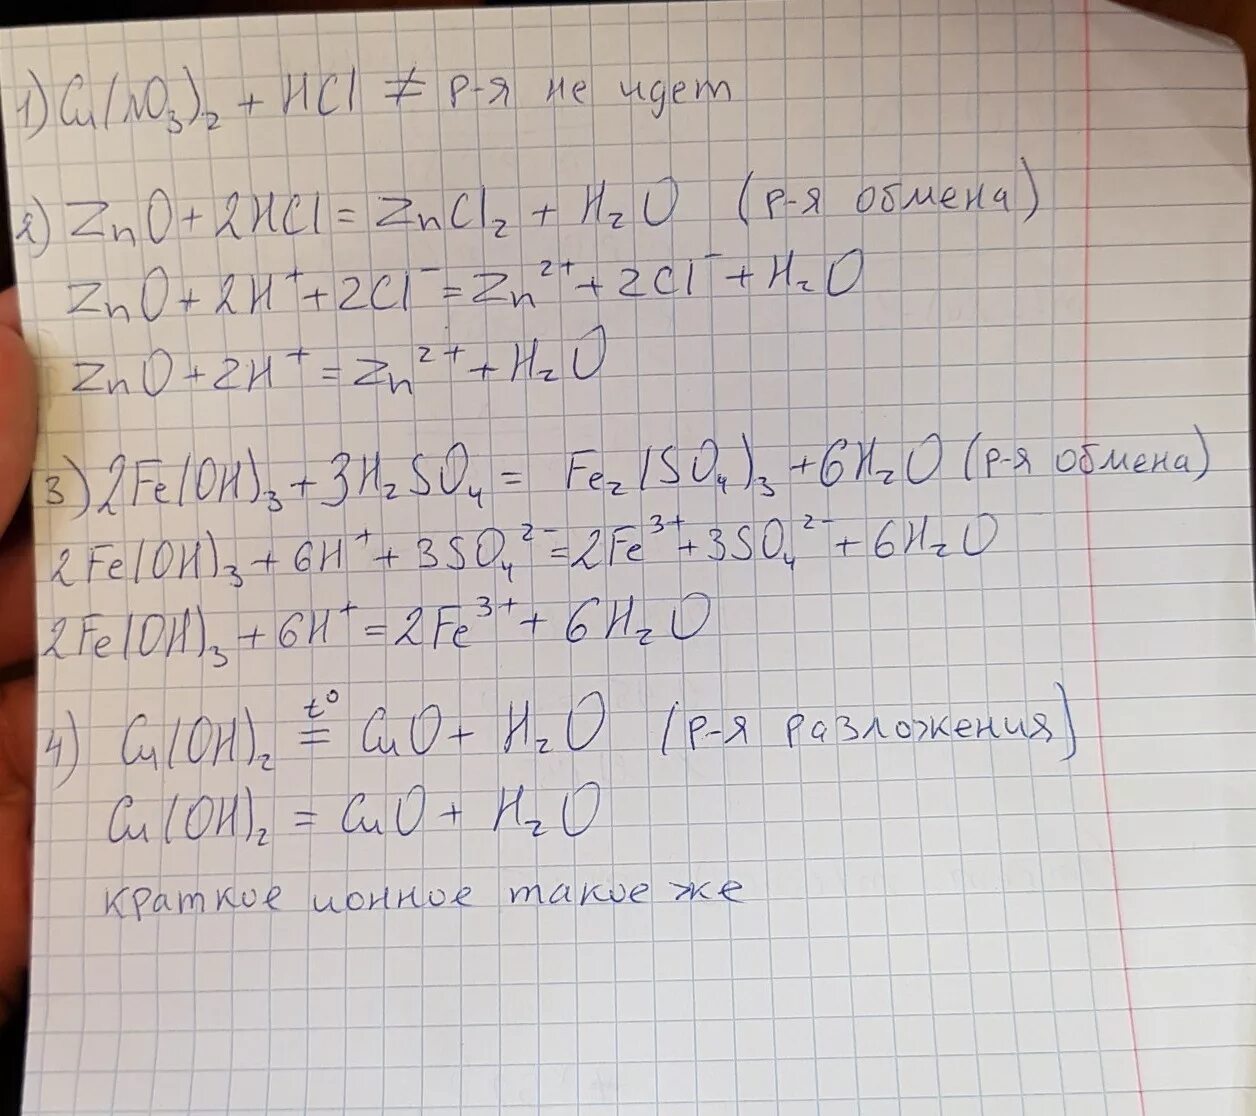 1) Cu(NO₃)₂ + HCl ≠ р-я не идет
2) ZnO + 2HCl = ZnCl₂ + H₂O (р-я обмена)
ZnO + 2H⁺ + 2Cl⁻ = Zn²⁺ + 2Cl⁻ + H₂O
ZnO + 2H⁺ = Zn²⁺ + H₂O
3) 2Fe(OH)₃ + 3H₂SO₄ = Fe₂(SO₄)₃ + 6H₂O (р-я обмена)
2Fe(OH)₃ + 6H⁺ + 3SO₄²⁻ = 2Fe³⁺ + 3SO₄²⁻ + 6H₂O
2Fe(OH)₃ + 6H⁺ = 2Fe³⁺ + 6H₂O
4) Cu(OH)₂ =(t°) CuO + H₂O (р-я разложения)
Cu(OH)₂ = CuO + H₂O
краткое ионное такое же